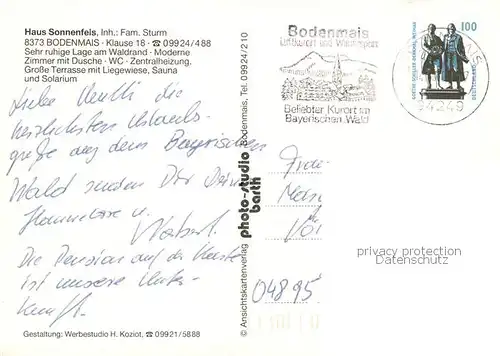 Haus Sonnenfels, Inh.: Fam. Sturm
8373 BODENMAIS · Klause 18 · ☎ 09924/488
Sehr ruhige Lage am Waldrand · Moderne
Zimmer mit Dusche · WC · Zentralheizung.
Große Terrasse mit Liegewiese, Sauna
und Solarium
Liebe die
herzlichsten Urlaubs-
grüße aus dem Bayrischen
Wald senden Dir Deine
Hannelore u.
Norbert.
Die Pension auf der Karte
ist unsere Unter-
kunft.
Gestaltung: Werbestudio H. Koziot, ☎ 09921/5888
© Ansichtskartenverlag photo-studio barth Bodenmais, Tel. 09924/210
Bodenmais
Luftkurort und Wintersport
Beliebter Kurort im
Bayerischen Wald
94249
GOETHE-SCHILLER-DENKMAL, WEIMAR
100
DEUTSCHLAND
Frau
04895
privacy protection
Datenschutz